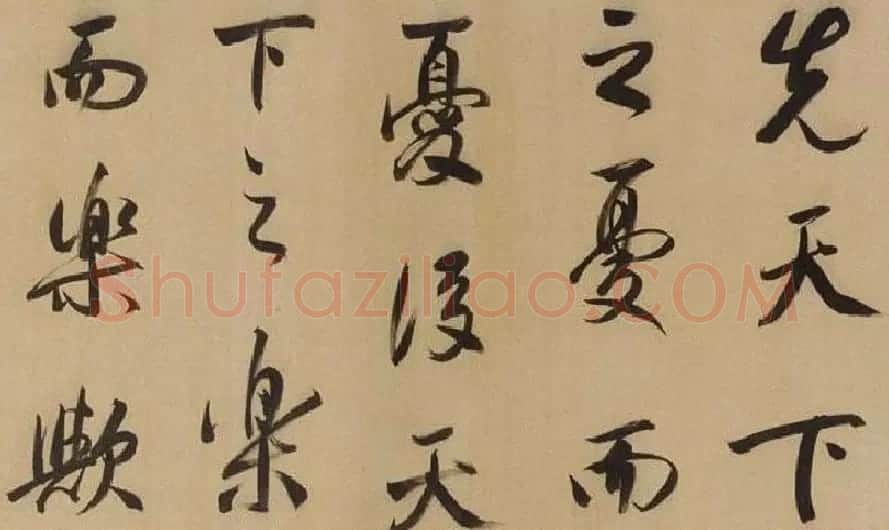 先天下
之憂而
憂後天
下之樂
而樂歟
Shufaziliao.COM